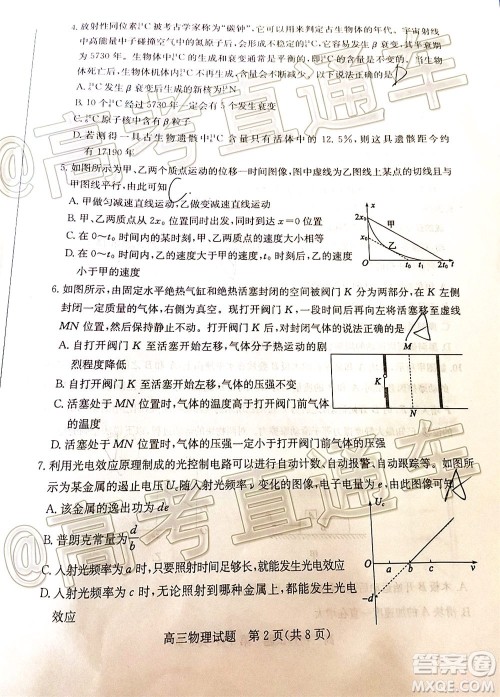 4. 放射性同位素¹⁴₆C 被考古学家称为“碳钟”,它可以用来判定古生物体的年代。宇宙射线
中高能量中子碰撞空气中的氮原子后,会形成不稳定的¹⁴₆C,它容易发生β衰变,其半衰期
为 5730 年。生物体中
生物死亡后,
A. ¹⁴₆C 发生β衰变后生成的新核为
B. 10 个¹⁴₆C 经过 5730 年一定有 5 个发生衰变
C. ¹⁴₆C 原子核中含有
D. 若测得一具古生物遗骸中¹⁴₆C 含量只有活体中的 12.5%,则这具遗骸距今约
有 17190 年
5. 如图所示为甲、乙两个质点运动的位移—时间图像,图中虚线与乙图线上某点的切线且与
甲图线平行,由此可知
C
A. 甲做匀减速直线运动,乙做变减速直线运动
B. 甲、乙两质点从 2x₀ 位置同时沿同方向运动
C. 在 0~t₀ 时间内的某时刻,甲、乙的速度相同
D. 在 0~t₀ 时间内,乙的速度
小于甲的速度
x
2x₀
x₀
甲
乙
0
t₀
t₁
2t₀
t
6. 如图所示,由固定水平绝热气缸和绝热活塞封闭的空间被阀门 K 分为两部分,在 K 左侧
封闭一定质量的气体,右侧为真空。现打开阀门 K,当活塞稳定后,将活塞左移至虚线
MN 位置,并保持静止不动。打开阀门 K 后,对封闭气体的说法正确的是
A
A. 从打开阀门 K 至活塞开始左移,气体分子运动的剧
烈程度降低
B. 自打开阀门 K 至活塞开始左移,气体的压强不变
C. 活塞处于 MN 位置时,气体的温度高于打开阀门前气体
的温度
D. 活塞处于 MN 位置时,气体的压强一定小于打开阀门前气体的压强
M
K
N
7. 利用光电效应原理制成的光控制电路可以进行自动计数、自动报警、自动跟踪等。如图所
示为某金属的遏止电压 U_c 随入射光频率 ν 变化的图像,电子电量为 e,由此图像可知
A
A. 该金属的逸出功为 de
B. 普朗克常量为 d/b
C. 入射光频率为 a 时,只要照射时间足够长,就能发生光电效应
D. 入射光频率为 c 时,无论照射到哪种金属上,都能发生光电效应
U_c
0
a
b
c
ν
高三物理试题 第 2 页(共 8 页)
@高考直通车
@高考直通车
答案圈